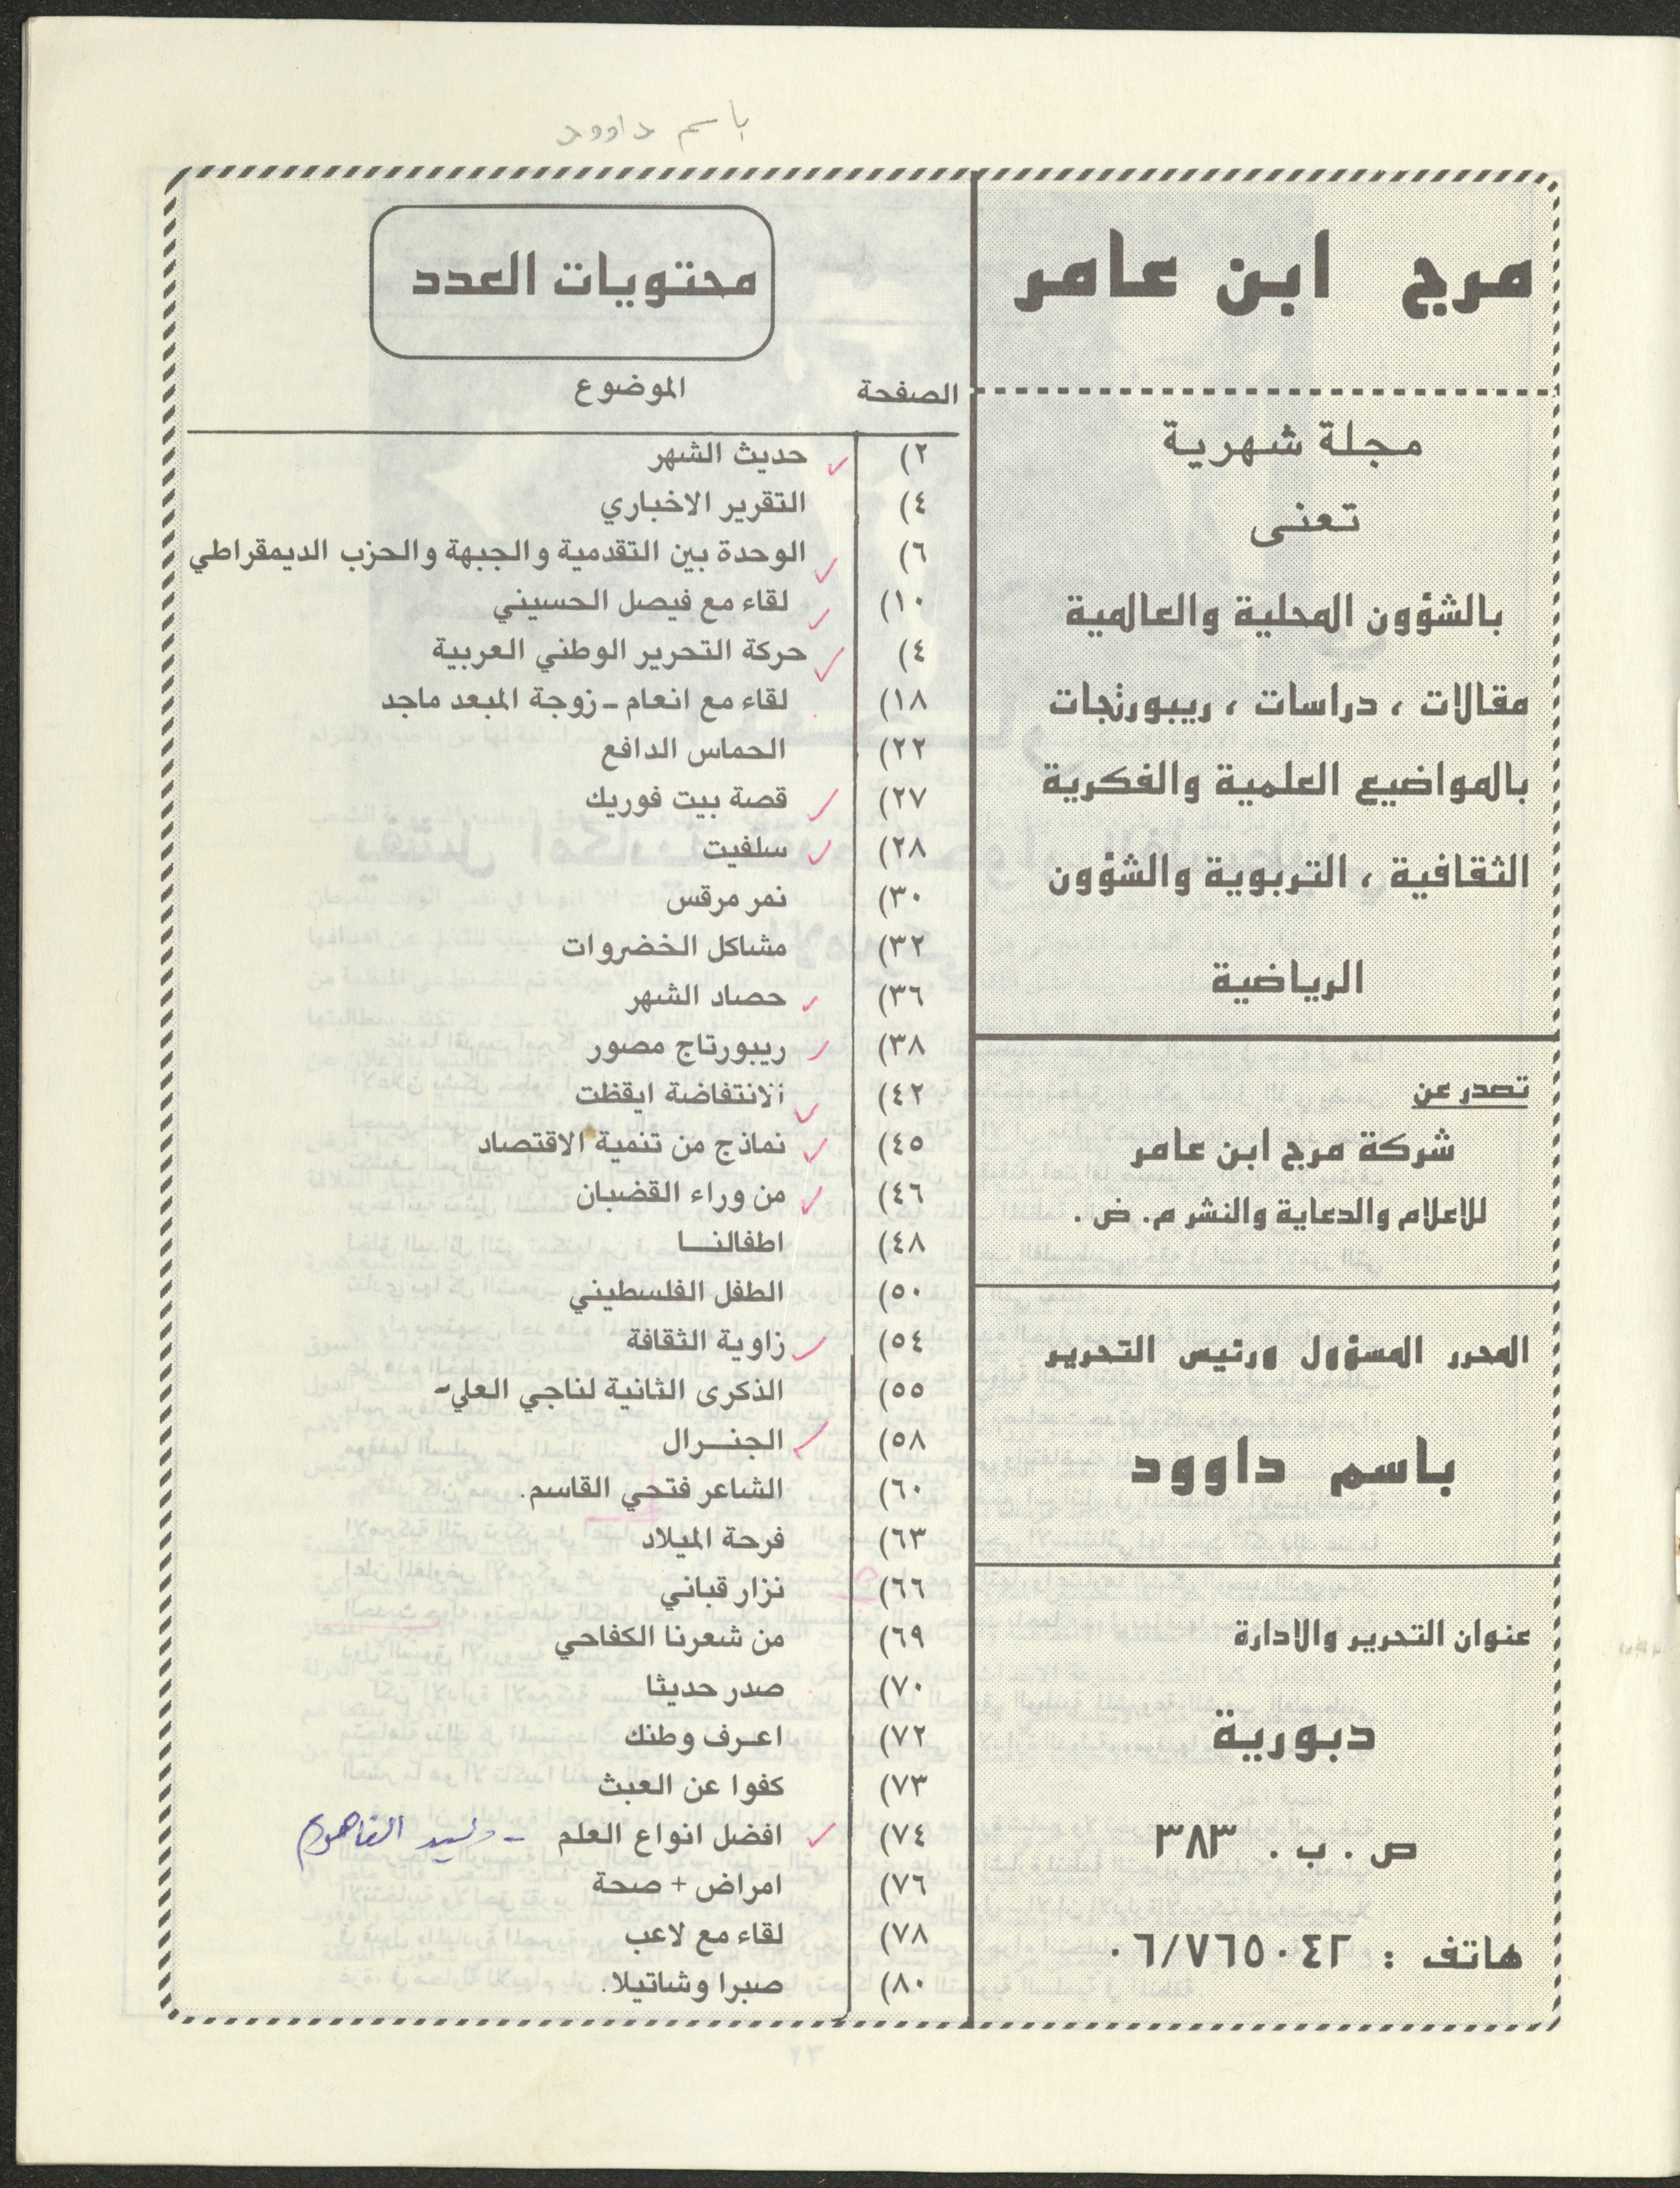 باسم داوود
مرج ابن عامر
مجلة شهرية
تعنى
بالشؤون المحلية والعالمية
مقالات ، دراسات ، ريبورتجات
بالمواضيع العلمية والفكرية
الثقافية ، التربوية والشؤون
الرياضية
تصدر عن
شركة مرج ابن عامر
للاعلام والدعاية والنشر م. ض .
المحرر المسؤول ورئيس التحرير
باسم داوود
عنوان التحرير والادارة
دبورية
ص . ب . ٣٨٣
هاتف : ٠٦/٧٦٥٠٤٢
محتويات العدد
الصفحة الموضوع
٢) حديث الشهر
٤) التقرير الاخباري
٦) الوحدة بين التقدمية والجبهة والحزب الديمقراطي
١٠) لقاء مع فيصل الحسيني
٤) حركة التحرير الوطني العربية
١٨) لقاء مع انعام - زوجة المبعد ماجد
٢٢) الحماس الدافع
٢٧) قصة بيت فوريك
٢٨) سلفيت
٣٠) نمر مرقس
٣٢) مشاكل الخضروات
٣٦) حصاد الشهر
٣٨) ريبورتاج مصور
٤٢) الانتفاضة ايقظت
٤٥) نماذج من تنمية الاقتصاد
٤٦) من وراء القضبان
٤٨) اطفالنـــا
٥٠) الطفل الفلسطيني
٥٤) زاوية الثقافة
٥٥) الذكرى الثانية لناجي العلي-
٥٨) الجنــرال
٦٠) الشاعر فتحي القاسم.
٦٣) فرحة الميلاد
٦٦) نزار قباني
٦٩) من شعرنا الكفاحي
٧٠) صدر حديثا
٧٢) اعـرف وطنك
٧٣) كفوا عن العبث
٧٤) افضل انواع العلم - وليد الفاهوم
٧٦) امراض + صحة
٧٨) لقاء مع لاعب
٨٠) صبرا وشاتيلا.